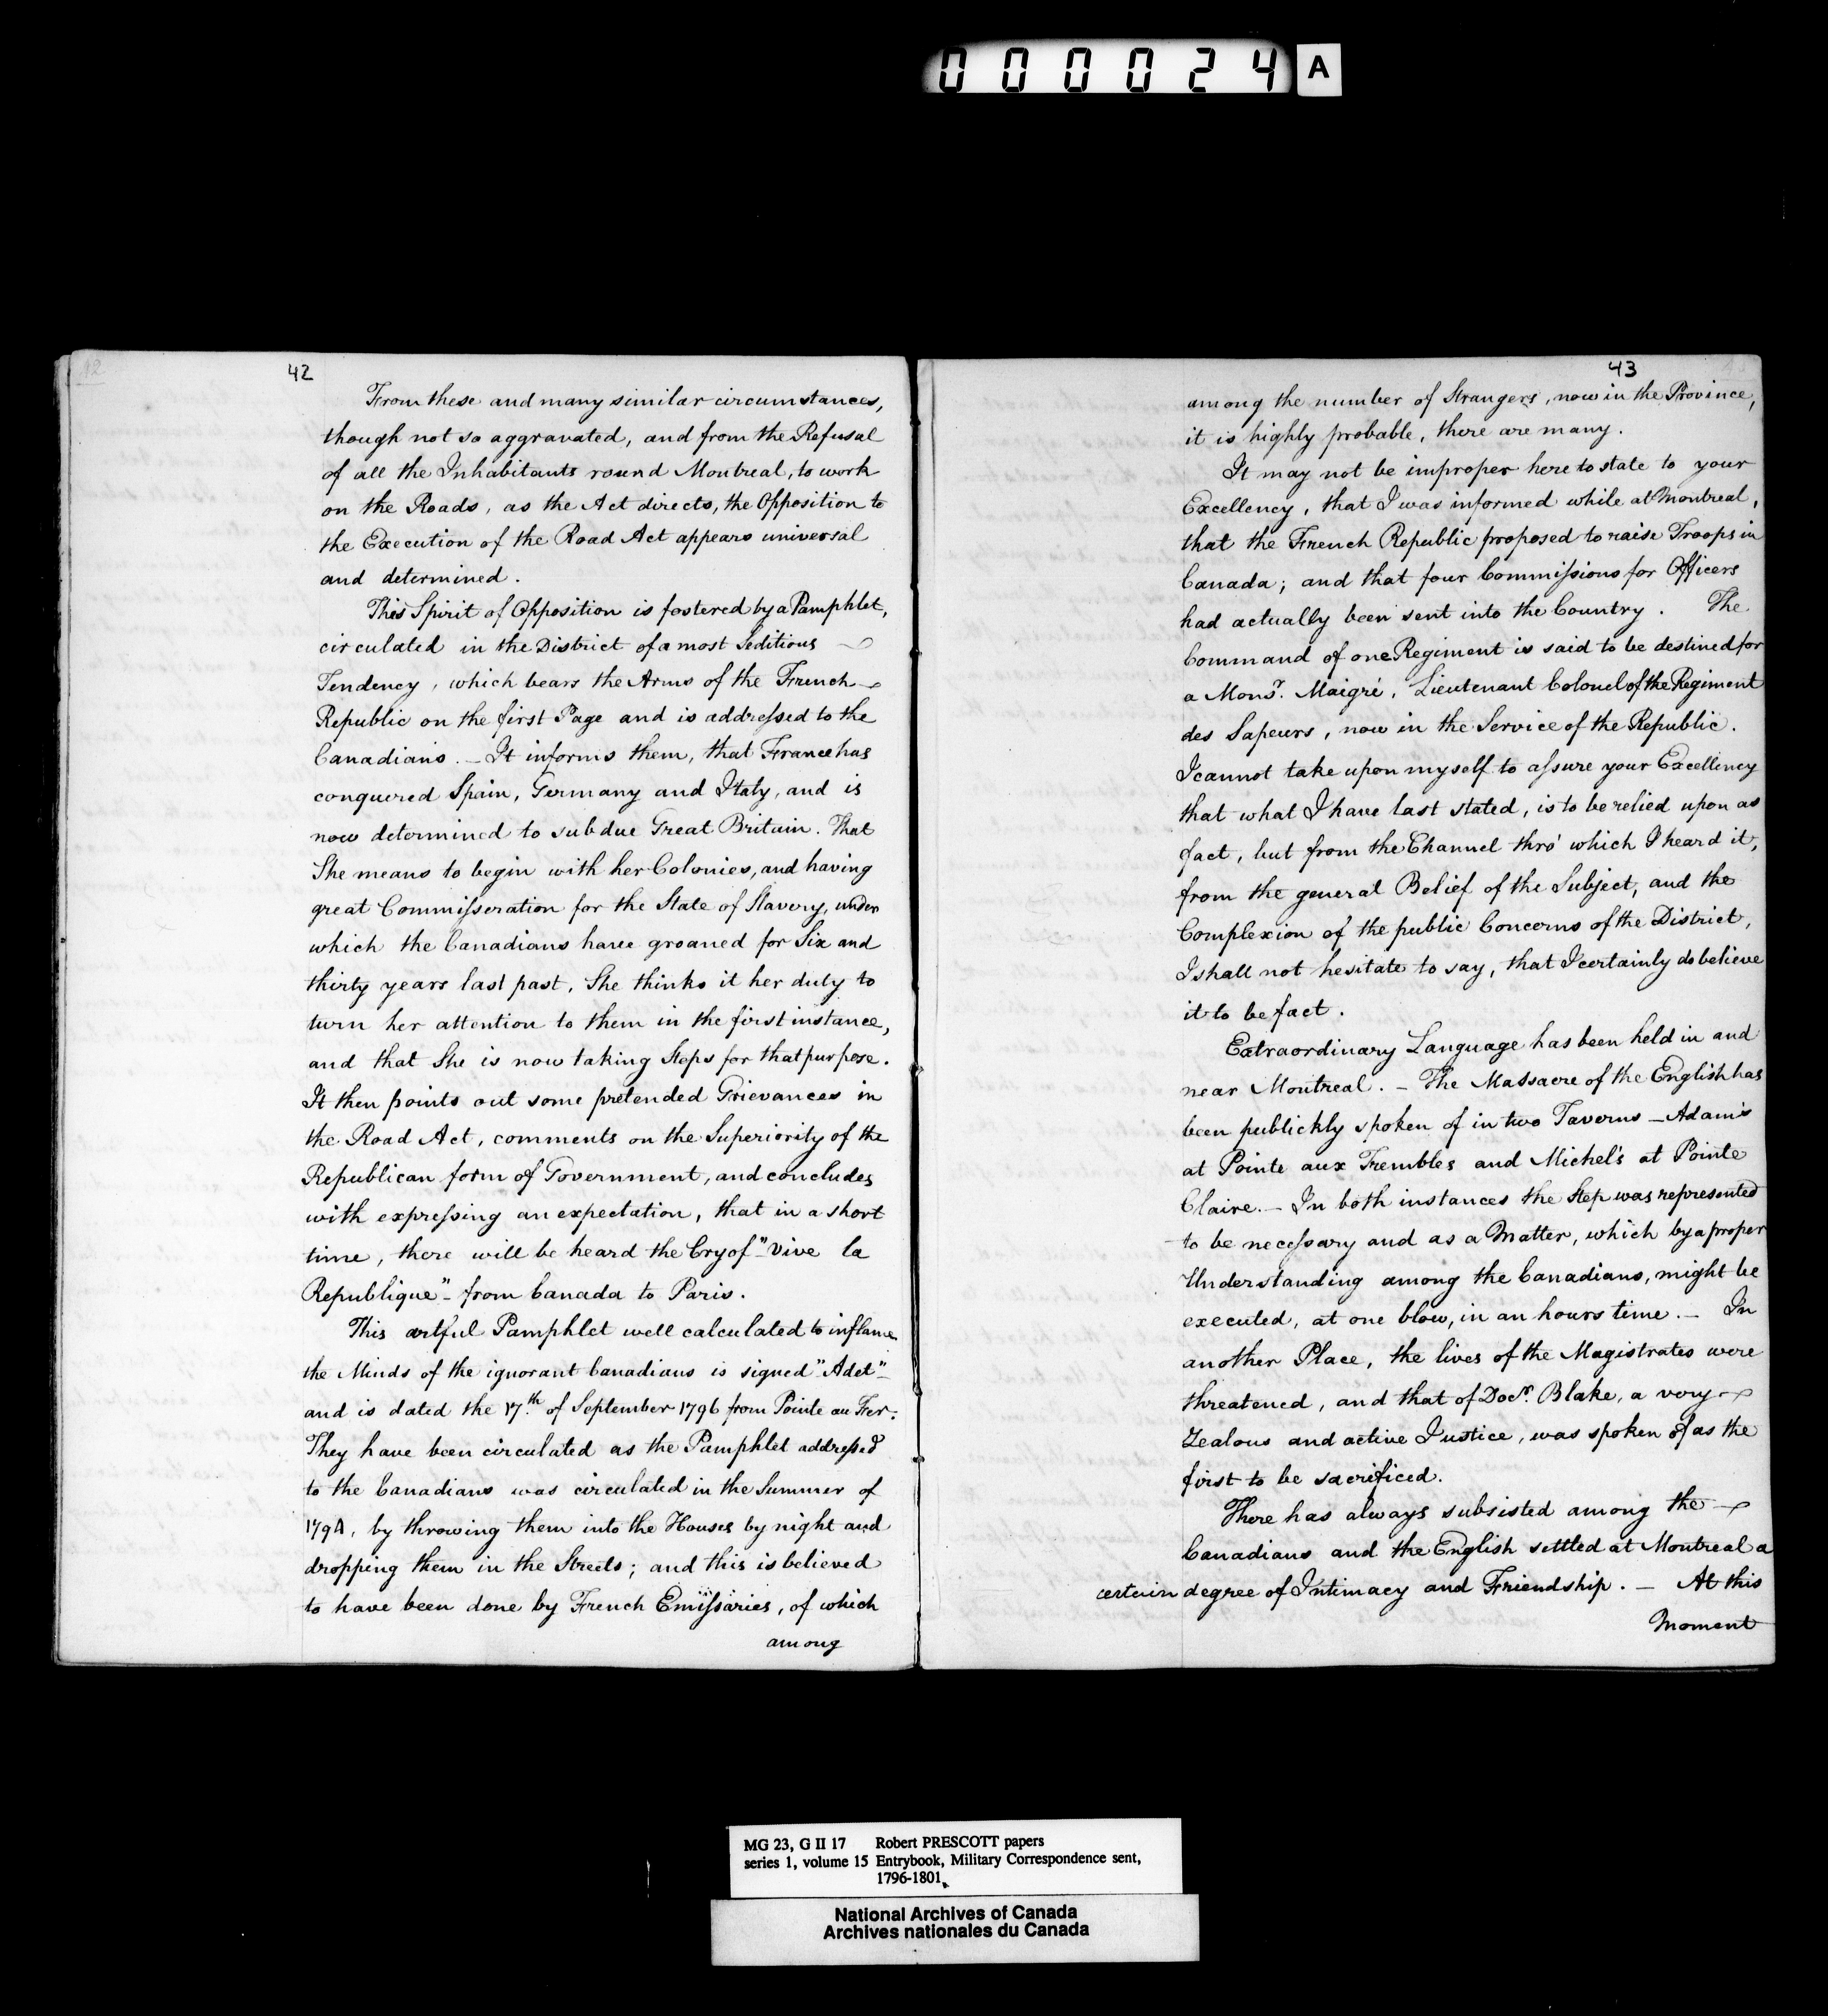 000024 A
42
From these and many similar circumstances,
though not so aggravated, and from the Refusal
of all the Inhabitants round Montreal, to work
on the Roads, as the Act directs, the Opposition to
the Execution of the Road Act appears universal
and determined.
This Spirit of Opposition is fostered by a Pamphlet,
circulated in the District of a most Seditious
Tendency, which bears the Arms of the French
Republic on the first Page and is addressed to the
Canadians. – It informs them, that France has
conquered Spain, Germany and Italy, and is
now determined to subdue Great Britain. That
She means to begin with her Colonies, and having
great Commisseration for the State of Slavery, under
which the Canadians have groaned for Six and
thirty years last past, She thinks it her duty to
turn her attention to them in the first instance,
and that She is now taking Steps for that purpose.
It then points out some pretended Grievances in
the Road Act, comments on the Superiority of the
Republican form of Government, and concludes
with expressing an expectation, that in a short
time, there will be heard the Cry of "– Vive la
Republique" – from Canada to Paris.
This artful Pamphlet well calculated to inflame
the Minds of the ignorant Canadians is signed "Adet" –
and is dated the 17.th of September 1796 from Pointe au Fer.
They have been circulated as the Pamphlet addressed
to the Canadians was circulated in the Summer of
1794, by throwing them into the Houses by night and
dropping them in the Streets; and this is believed
to have been done by French Emissaries, of which
among
43
among the number of Strangers, now in the Province,
it is highly probable, there are many.
It may not be improper here to state to your
Excellency, that I was informed while at Montreal,
that the French Republic proposed to raise Troops in
Canada; and that four Commissions for Officers
had actually been sent into the Country. The
Command of one Regiment is said to be destined for
a Mons.r Maigré, Lieutenant Colonel of the Regiment
des Sapeurs, now in the Service of the Republic.
I cannot take upon myself to assure your Excellency
that what I have last stated, is to be relied upon as
fact, but from the Channel thro' which I heard it,
from the general Belief of the Subject, and the
Complexion of the public Concerns of the District,
I shall not hesitate to say, that I certainly do believe
it to be fact.
Extraordinary Language has been held in and
near Montreal. – The Massacre of the English has
been publickly spoken of in two Taverns – Adam's
at Pointe aux Trembles and Michel's at Pointe
Claire. – In both instances the Step was represented
to be necessary and as a Matter, which by a proper
Understanding among the Canadians, might be
executed, at one blow, in an hours time. – In
another Place, the lives of the Magistrates were
threatened, and that of Doc.r Blake, a very
Zealous and active Justice, was spoken of as the
first to be sacrificed.
There has always subsisted among the
Canadians and the English settled at Montreal a
certain degree of Intimacy and Friendship. – At this
Moment
MG 23, G II 17 Robert PRESCOTT papers
series 1, volume 15 Entrybook, Military Correspondence sent,
1796-1801
National Archives of Canada
Archives nationales du Canada